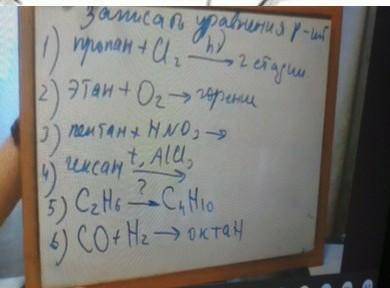 Записать уравнения р-ий
1) пропан + Cl₂ —hν→ 2 стадии
2) этан + O₂ → горение
3) пентан + HNO₃ →
4) гексан —t, AlCl₃→
5) C₂H₆ —?→ C₄H₁₀
6) CO + H₂ → октан